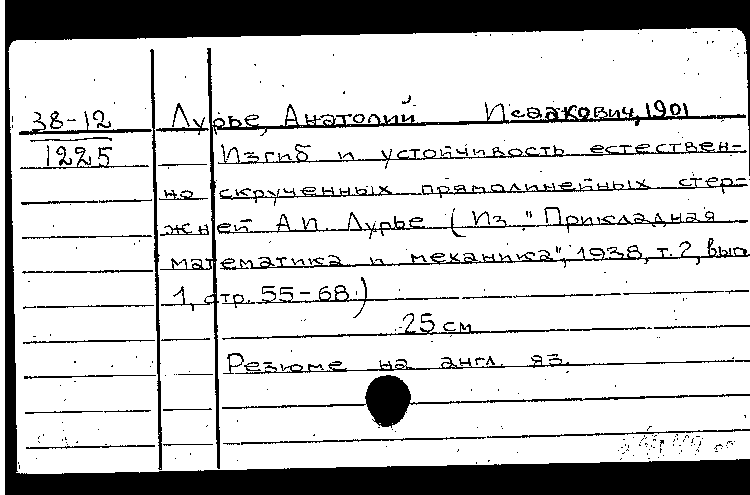 38-12 Лурье, Анатолий Исаакович, 1901
1225 Изгиб и устойчивость естествен-
но скрученных прямолинейных стер-
жней А.И. Лурье (Из "Прикладная
математика и механика", 1938, т. 2, вып.
1, стр. 55-68.)
25 см
Резюме на англ. яз.